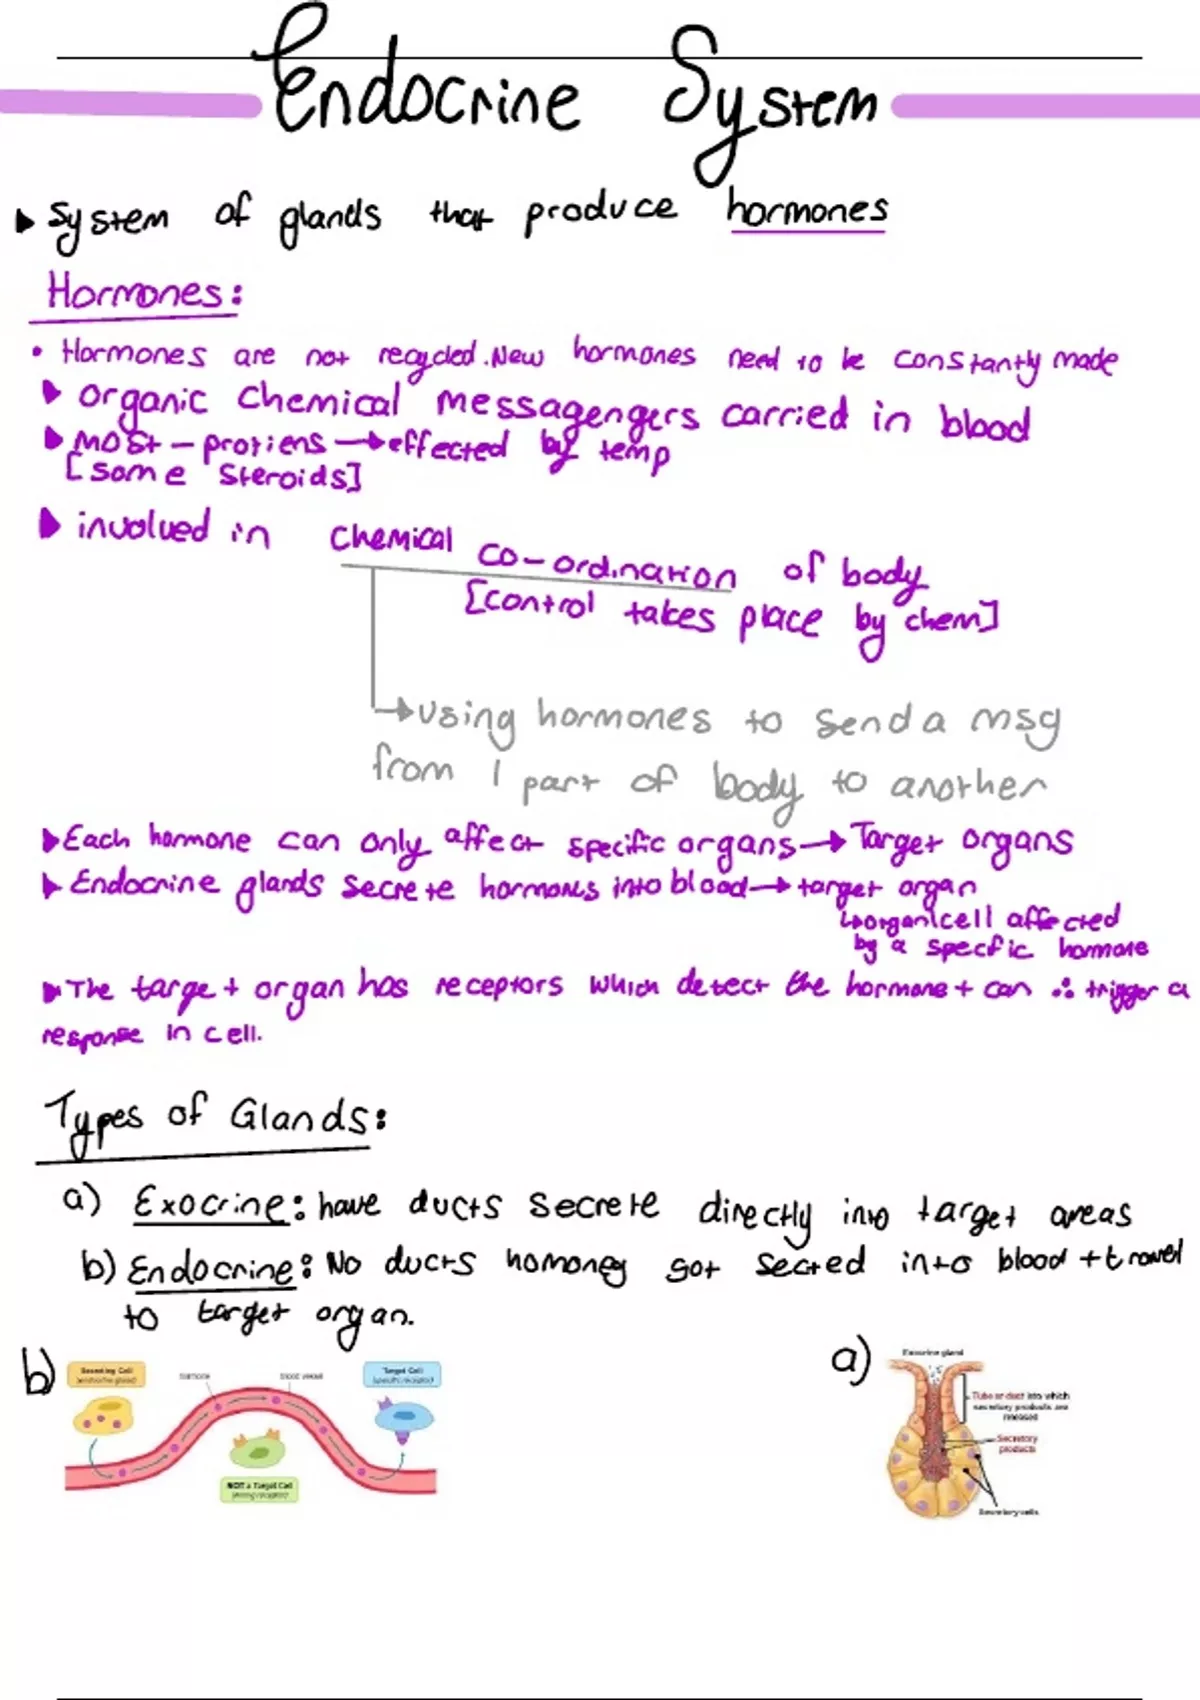 Endocrine System
▶ System of glands that produce hormones
Hormones:
• Hormones are not recycled. New hormones need to be constantly made
▶ organic chemical messagengers carried in blood
▶ most – protiens → effected by temp
[some steroids]
▶ involved in chemical co-ordination of body
[control takes place by chem]
→ using hormones to send a msg
from 1 part of body to another
▶ Each hormone can only affect specific organs → Target organs
▶ Endocrine glands secrete hormones into blood → target organ
↳ organ/cell affected
by a specfic hormone
▶ The target organ has receptors which detect the hormone + can ∴ trigger a
response in cell.
Types of Glands:
a) Exocrine: have ducts secrete directly into target areas
b) Endocrine: No ducts homones got secred into blood + travel
to target organ.
b)
Secreting Cell
(endocrine gland)
hormone
blood vessel
Target Cell
(specific receptor)
NOT a Target Cell
(wrong receptor)
a)
Exocrine gland
Tube or duct into which
secretory products are
released
Secretory
products
Secretory cells